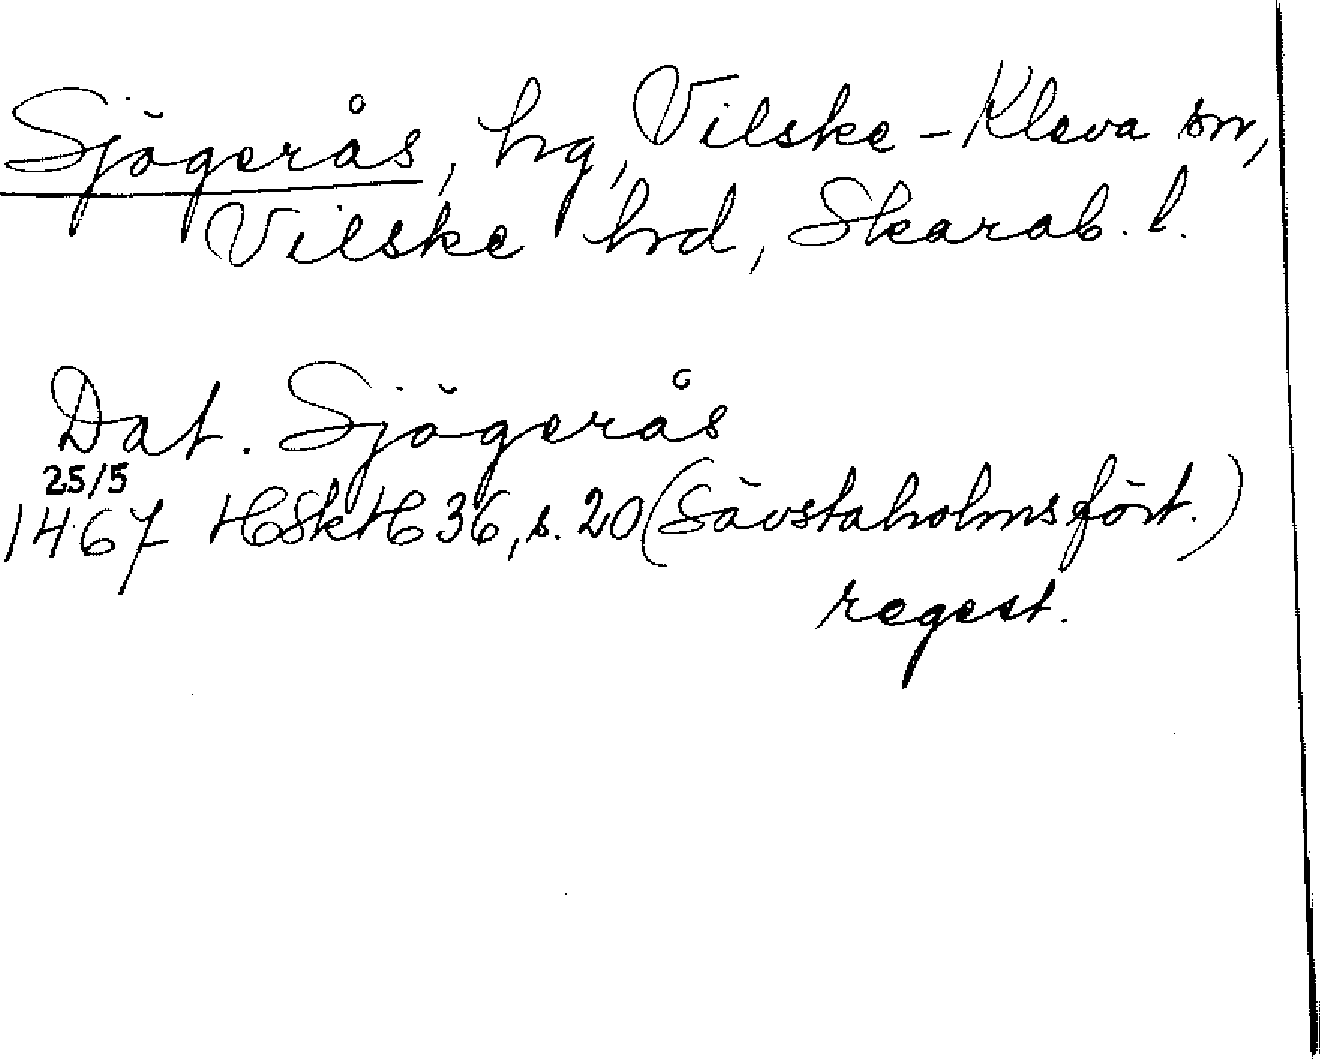 Sjögerås, hg, Vilske-Kleva sn,
Vilske hd, Skarab. l.
Dat. Sjögerås
25/5
1467 HSkH 36, s. 20 (Sävstaholmsfört.)
regest.